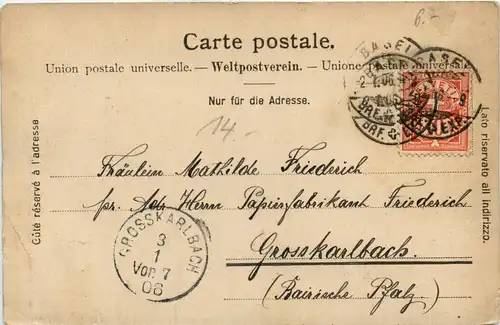 6.-
Carte postale.
Union postale universelle. — Weltpostverein. — Unione postale universale
Nur für die Adresse.
14.-
Côté réservé à l'adresse
Lato riservato all indirizzo.
BASEL
BRF. EXP.
Fräulein Mathilde Friederich
pr. Adr Herrn Papierfabrikant Friederich
Grosskarlbach.
(Bairische Pfalz)
GROSSKARLBACH
3
1
Vor 7
06